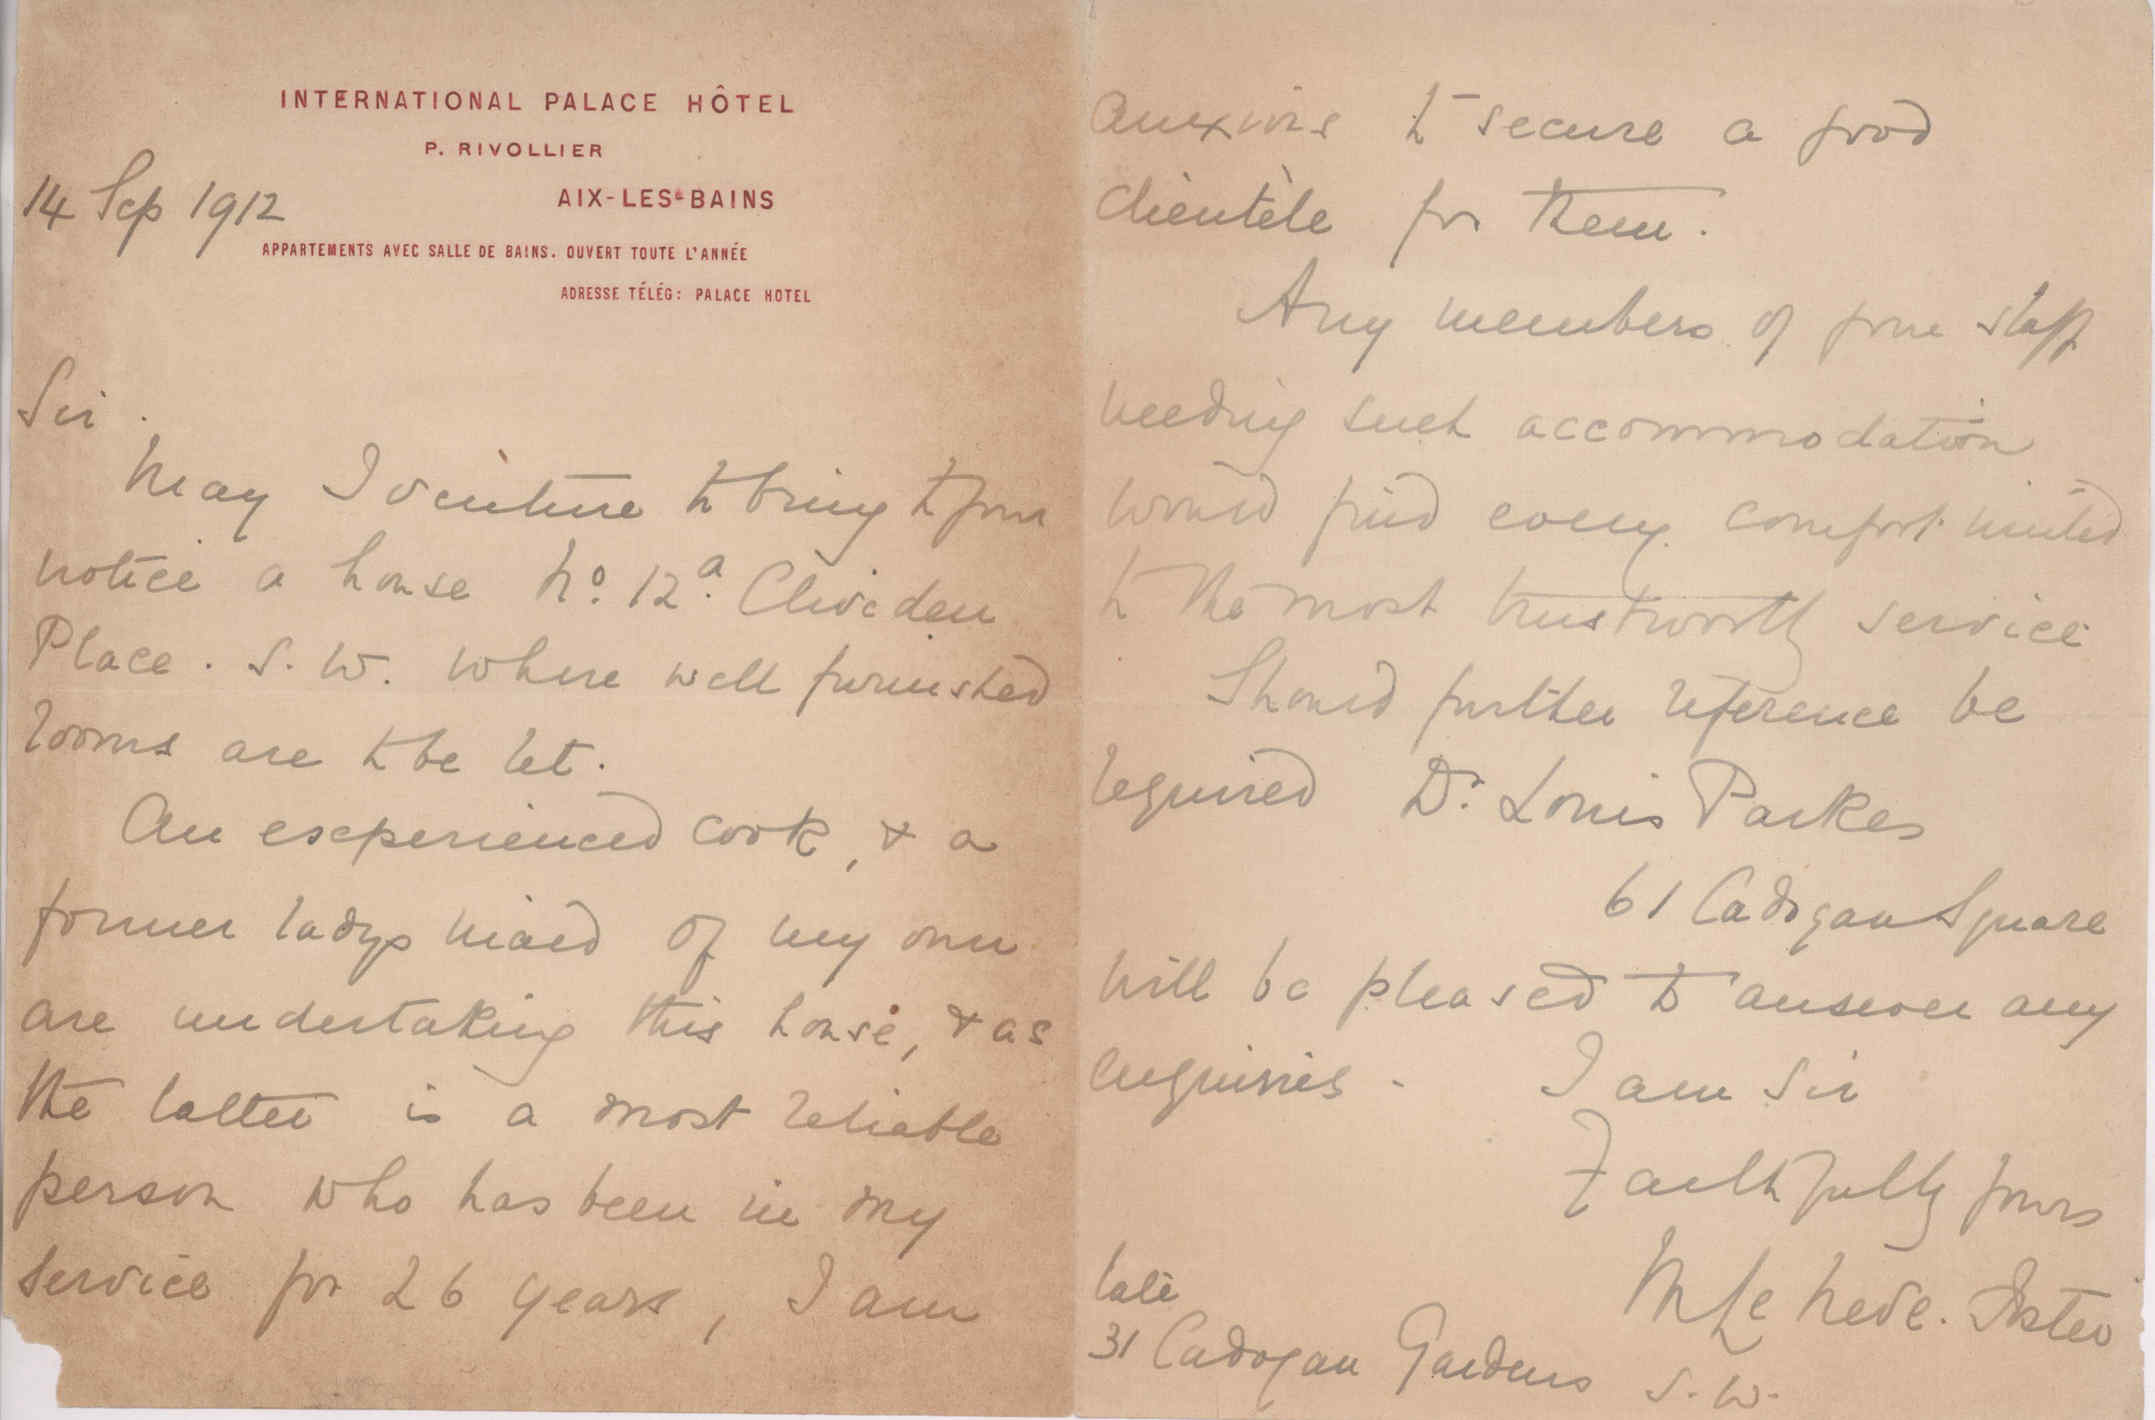 INTERNATIONAL PALACE HÔTEL
P. RIVOLLIER
14 Sep 1912
AIX-LES-BAINS
APPARTEMENTS AVEC SALLE DE BAINS. OUVERT TOUTE L'ANNÉE
ADRESSE TÉLÉG: PALACE HOTEL
Sir.
May I venture to bring to your
notice a house No. 12a. Cliveden
Place. S. W. where well furnished
rooms are to be let.
An experienced cook, & a
former ladys maid of my own
are undertaking this house, & as
the latter is a most reliable
person who has been in my
service for 26 years, I am
anxious to secure a good
clientèle for them.
Any members of your staff
needing such accommodation
would find every comfort united
to the most trustworthy service
Should further reference be
required Dr. Louis Parkes
61 Cadogan Square
will be pleased to answer any
enquiries. I am Sir
Faithfully yours
M Le Neve. Foster
late
31 Cadogan Gardens S. W.